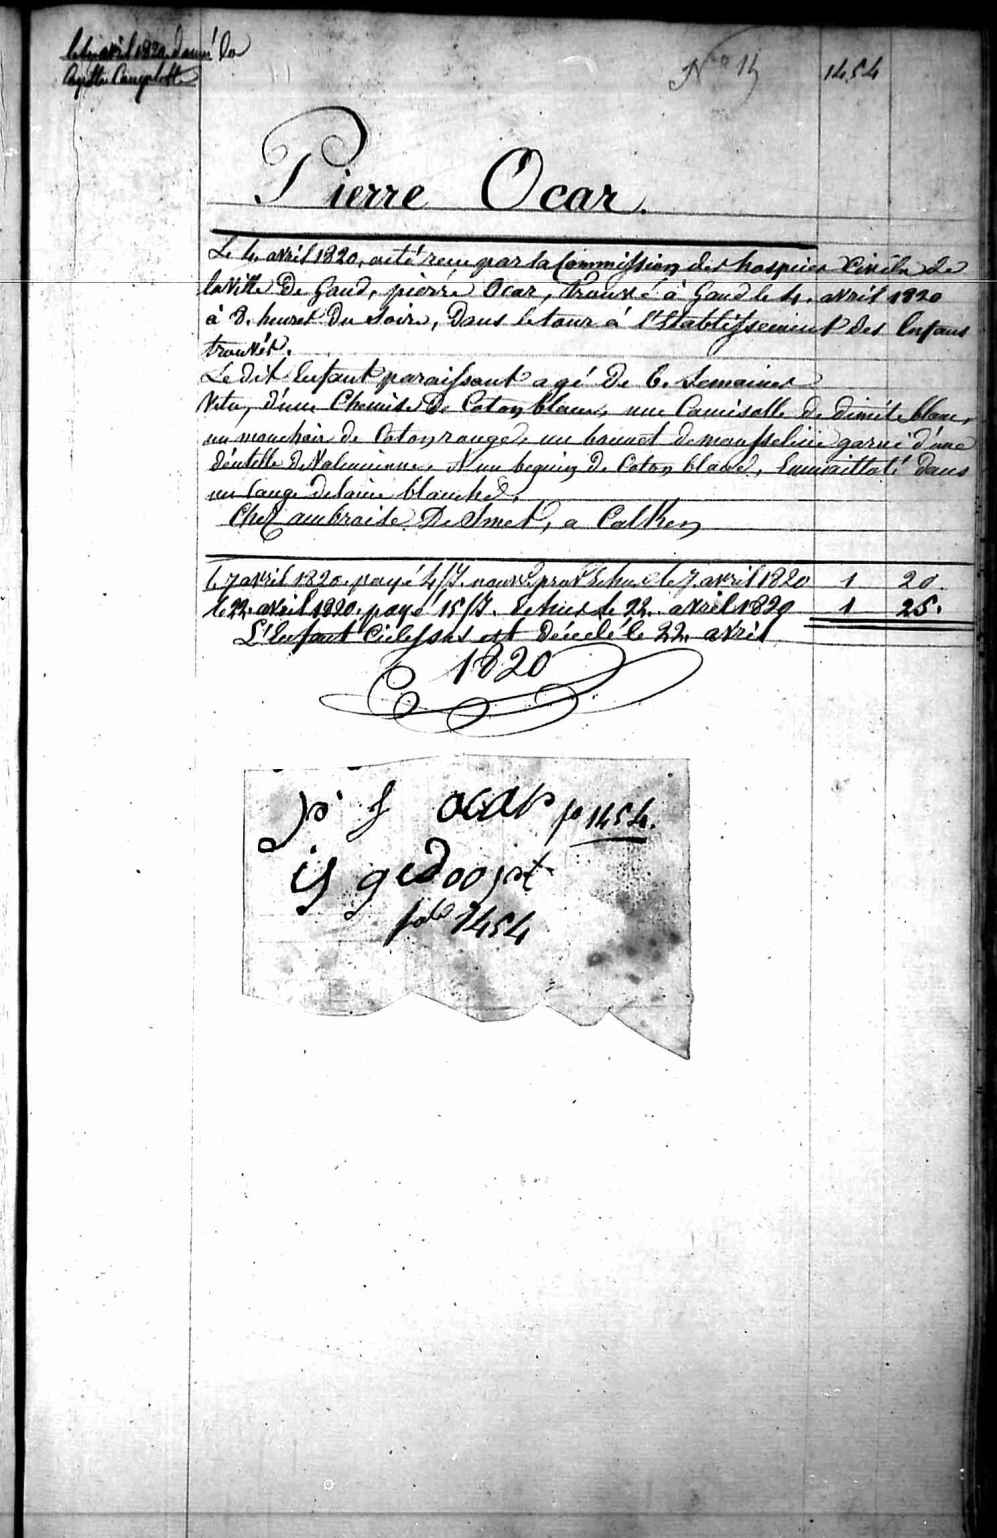 le 7 avril 1820 donné la
layette Complette
N° 15
1454
Pierre Ocar.
Le 4. avril 1820, a été reçu par la Commission des hospices Civils de
la Ville De Gand, pierre Ocar, trouvé à Gand le 4. avril 1820
à 8. heures Du Soire, Dans le tour à l'Etablissement des Enfans
trouvés.
Le dit Enfant paraissant agé De 6. Semaines
Vetu, d'une Chemise De Coton blanc, une Camisolle de dimite blanc,
un mouchoir de Coton rouge, un bonnet de mousseline garni d'une
déntelle de Valencienne, & un beguin de Coton blanc, Emmailloté dans
un lange de laine blanche,
Chez ambroise De Smet, a Calken
le 7 avril 1820. payé 4/J. le 7 avril 1820 1 20
le 22. avril 1820. payé 15/J. Echus le 22. avril 1820 1 25.
L'Enfant Cidessus est Décedé le 22. avril
1820
p f ocar fo 1454.
is gedoopt
folo 1454